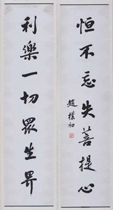 恒不忘失菩提心
利樂一切眾生界
趙樸初